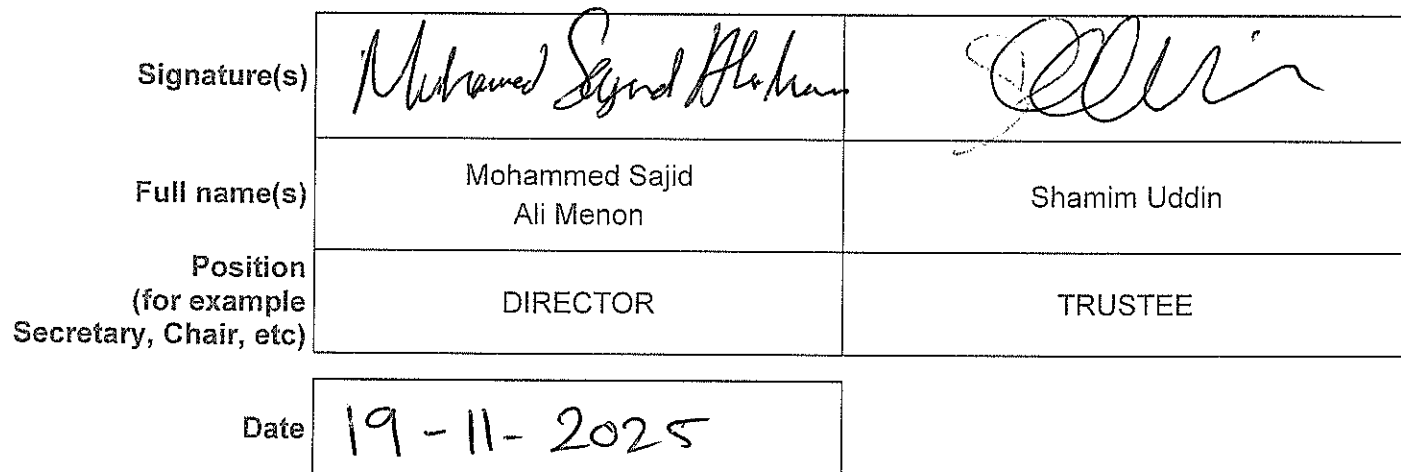 Signature(s)
Full name(s)
Mohammed Sajid
Ali Menon
Shamim Uddin
Position
(for example
Secretary, Chair, etc)
DIRECTOR
TRUSTEE
Date
19-11-2025